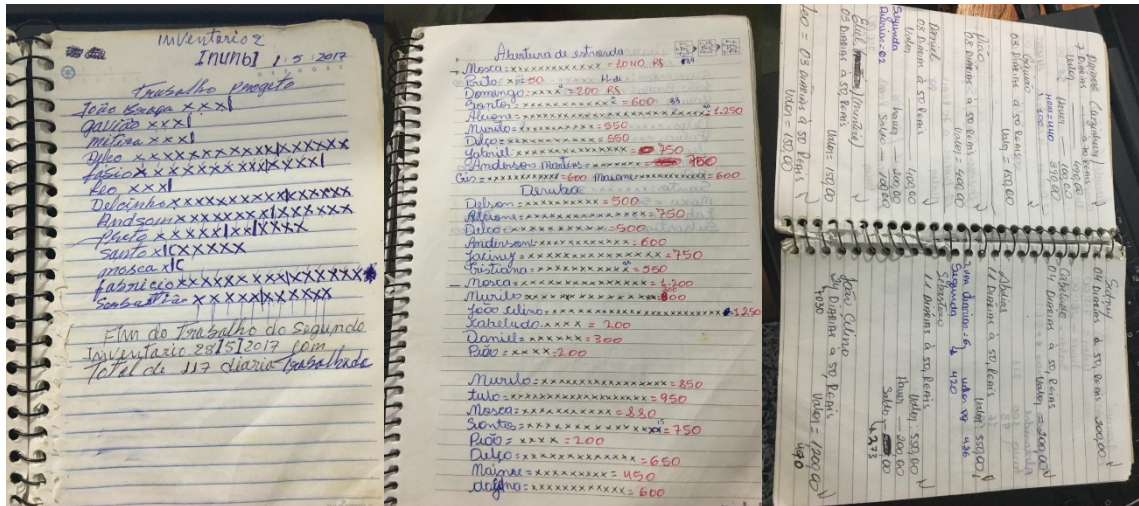 Inventario 2
Inunbi 1 5 2017
Trabalho Progeto
João Braga xxx|
Galvão xxx|
mitixa xxx|
Delço xxxxxxxxxxxxxxxxx
fasio xxxxxxxxxxxxxxx|
Leo xxx|
Delcinho xxxxxxxxxxxxxx
Andsom xxxxxxxxxxxxx
Preto xxxxxxxxxxx
Santo x|cxxxxx
mosca x|c
fabricio xxxxxxxxxxxxxxx
Sembastião xxxxxxxxxxx
Fim do Trabalho do Segundo
Inventario 28/5/2017 com
Total de 117 diaria Trabalhada
Abertura de estrada
Mosca=xxxxxxxxxxxxxxxx=1040 R$
=50
Domingo=xxxx=200 R$
Santos=xxxxxxxxxxxx=600
Alcione=xxxxxxxxxxxxxxxxxxxxxxxxx=1.250
Murilo=xxxxxxxxxxx=550
Delço=xxxxxxxxxxx=550
Gabriel=xxxxxxxxxxxxxxx=750
Anderson Martins=xxxxxxxxxxxxxxx=750
=xxxxxxxxxxxx=600 =xxxxxxxxxxxx=600
Deruba
Delson=xxxxxxxxxx=500
Alcione=xxxxxxxxxxxxxxx=750
Delço=xxxxxxxxxx=500
Anderson=xxxxxxxxxxxx=600
=xxxxxxxxxxxxxxx=750
Cristiano=xxxxxxxxxxx=550
Mosca=xxxxxxxxxxxxxxxx=1.200
Murilo=xxxxxxxxxxxxxxxx=800
João Celino=xxxxxxxxxxxxxxxxxxxxxxxxx=1.250
Xabeludo=xxxx=200
Daniel=xxxxxx=300
Pião=xxxx=200
Murilo=xxxxxxxxxxxxxxxxx=850
tulo=xxxxxxxxxxxxxxxxxxx=950
Mosca=xxxxxxxxxxxxxxxx=880
Santos=xxxxxxxxxxxxxxx=750
Pião=xxxx=200
Delço=xxxxxxxxxxxxx=650
=xxxxxxxxx=450
=xxxxxxxxxxxx=600
7 Diarias à 70 Reais
Valor = 490,00
03 Diarias à 50 Reais
Valor = 150,00
Pião
08 Diarias à 50, Reais
Valor = 400,00
Daniel
08 Diarias à 50, Reais
Valor 400,00
Haver — 300,00
Saldo — 100,00
Segunda
Diarias = 02
03 Diarias à 50, Reais
Valor = 150,00
Leo = 03 Diarias à 50, Reais
Valor = 150,00
04 Diarias à 50, Reais 200,00
Cabeludo
04 Diarias à 50, Reais
Valor = 200,00
Abdias
11 Diarias à 50, Reais
Valor 550,00
Segunda 420
Sebastiano
11 Diarias à 50, Reais
Valor: 550,00
Haver — 200,00
273
João Celino
24 Diarias à 50, Reais
Valor = 1200,00